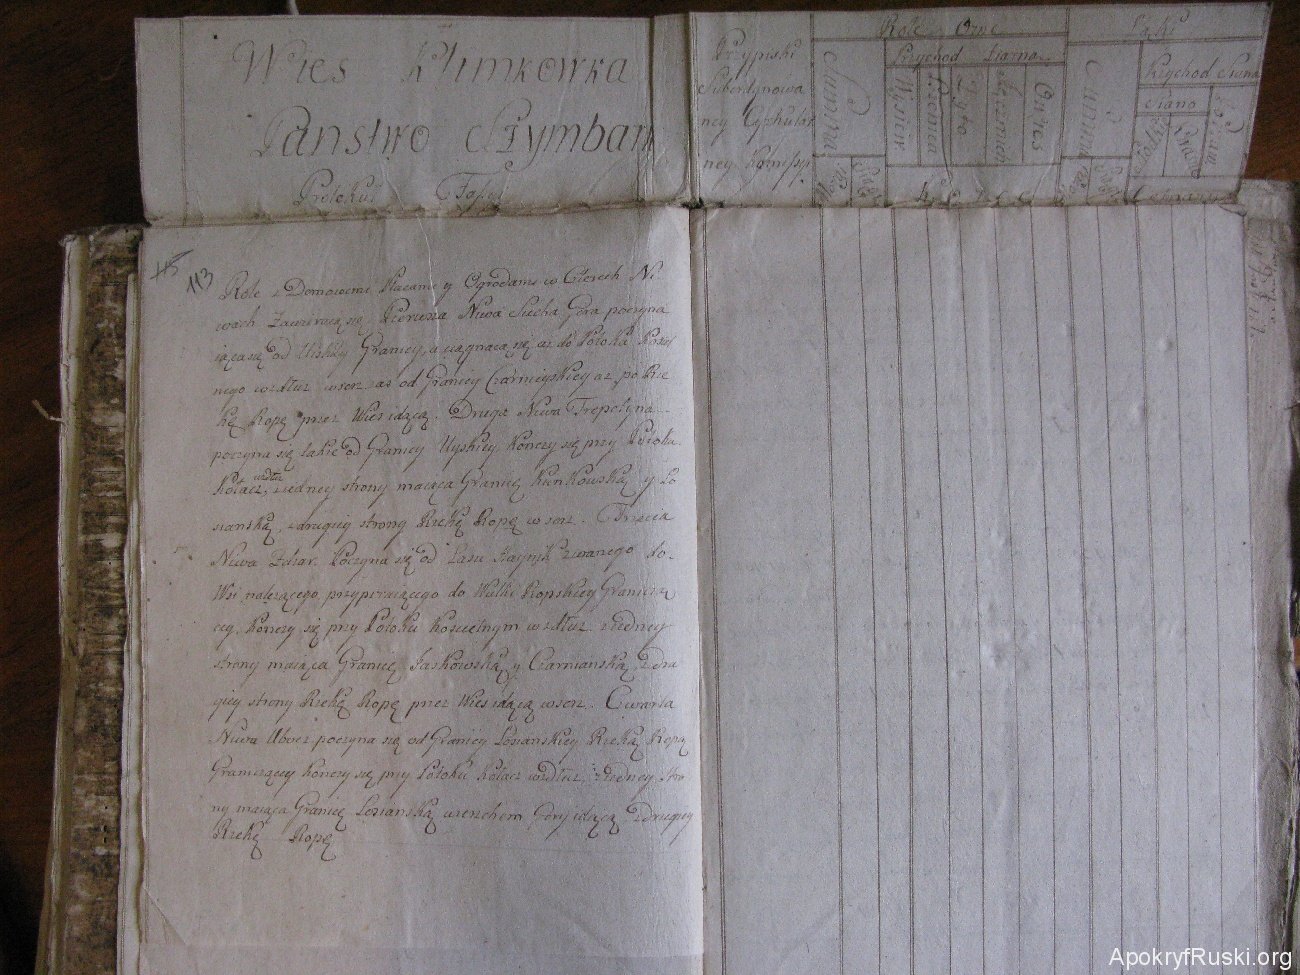 Wies Klimkowka
Panstwo Szymbark
Protokuł Fass
Przypiski
Suberdynowa
ney Cyrkular
ney Kommissyi
Role Orne
Summa
Przychod Ziarna
Pszenica
Żyto
Jęczmień
Owies
Łąki
Summa
Przychod Siana
Siano
Słodkie
Potraw
115
113
Role z Domowemi Placami y Ogrodami w Cżterech Ni
wach Zawieraią się, Pierwsza Niwa Sucha Gora poczyna
iąca się od Uiskiey Granicy, a ciągnąca się aż do Potoka Kosciel
nego wzdłuż wszerz aż od Granicy Czarneyskiey aż po Rze
kę Ropę przez Wies idącą. Druga Niwa Trepetyna
poczyna się takie od Granicy Uyskiey, kończy się przy Potoku
Kołacz wzdłuż, z iedney strony maiąca Granicę Kunkowską y Ło
sianską, z drugiey strony Rzekę Ropę wszerz. Trzecia
Niwa Zdiar. Poczyna się od Lasu zwanego do
Wsi należącego przypieraiącego do Wulki Ropskiey Granicżą
cey, Konczy się przy Potoku Koscielnym wzdłuż z iedney
strony maiąca Granicę Jaskowską y Czarnianską, z dru
giey strony Rzekę Ropę przez Wies idącą wszerz. Czwarta
Niwa Ubocz poczyna się od Granicy Łosianskiey Rzeką Ropą
Graniczącey Konczy się przy Potoku Kołacz wzdłuż z iedney stro
ny maiąca Granicę Łosianską wierzchem Gory idącą z drugiey
Rzekę Ropę
ApokryfRuski.org